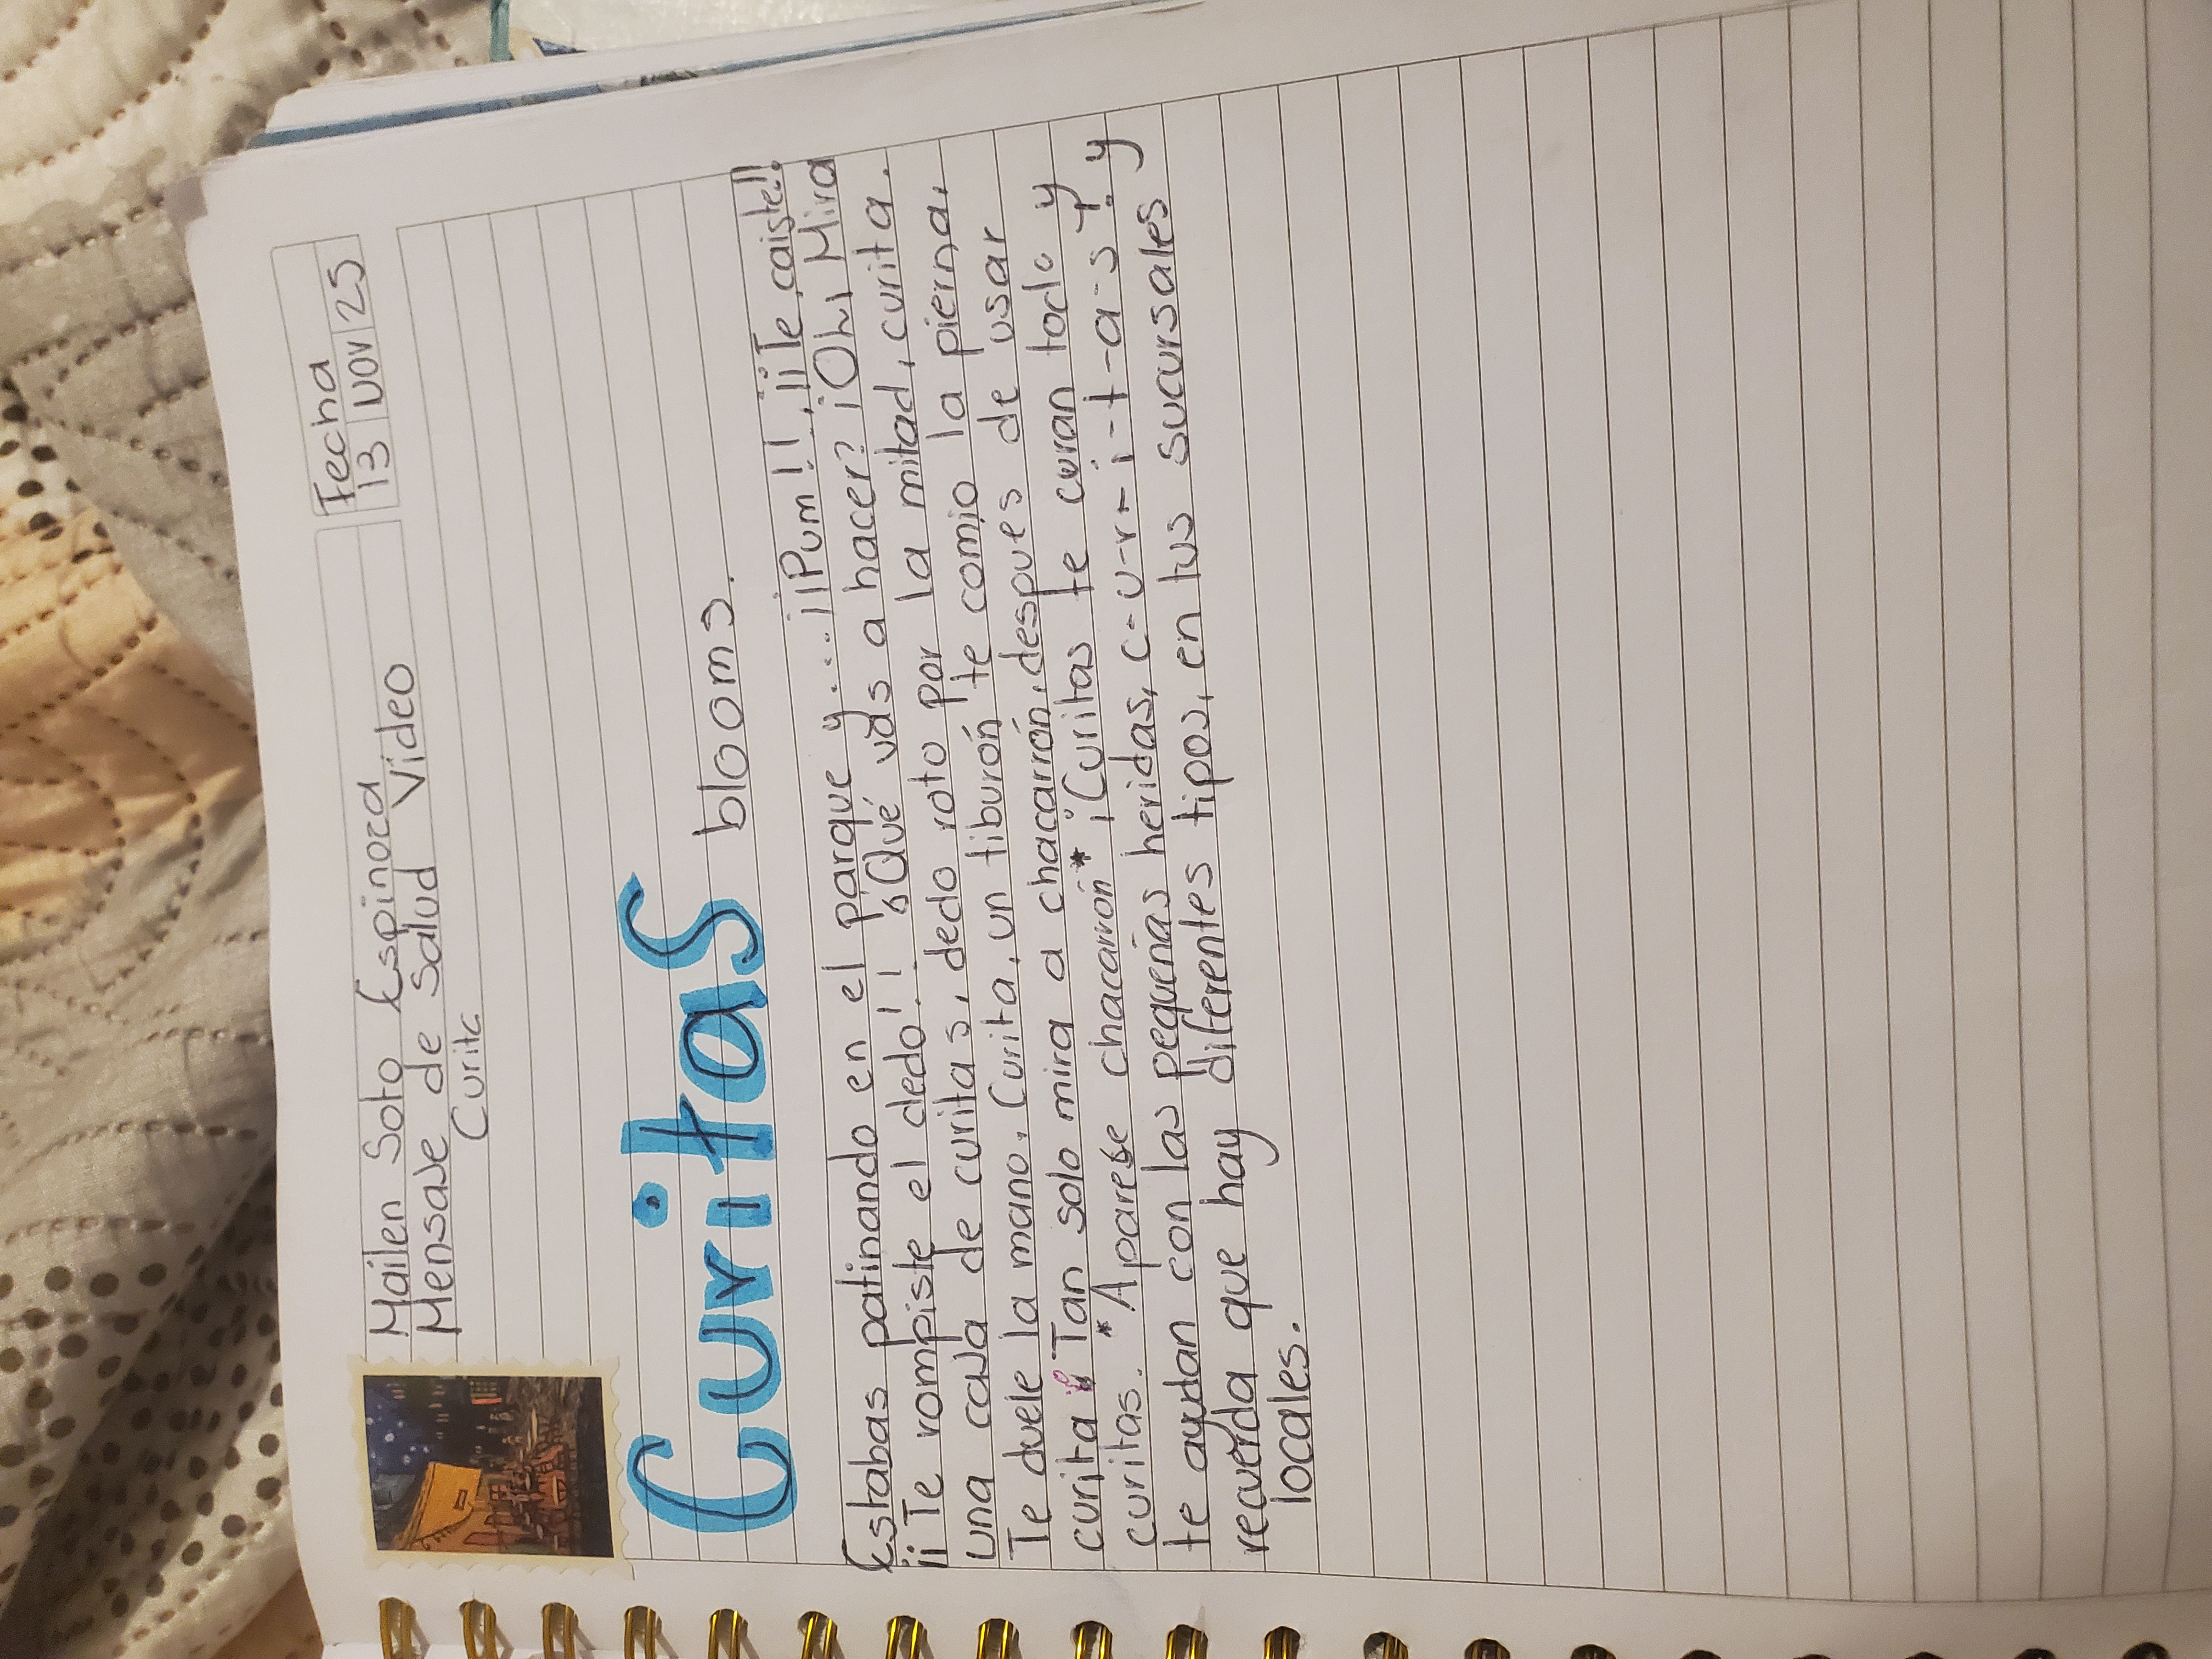 Mailen Soto Espinoza
Mensaje de Salud Video
Curita
Fecha
13 NOV 25
Curitas blooms.
Estabas patinando en el parque y.... ¡¡Pum!!, ¡¡Te caiste!!
¡¡Te rompiste el dedo!! ¿Qué vas a hacer? ¡Oh! Mira
una caja de curitas, dedo roto por la mitad, curita.
Te duele la mano, Curita, un tiburón te comio la pierna,
curita Tan solo mira a chacarrón, despues de usar
curitas. *"Aparese chacarrón"* ¡Curitas te curan todo y
te ayudan con las pequeñas heridas, c-u-r-i-t-a-s! y
recuerda que hay diferentes tipos, en tus sucursales y
locales.